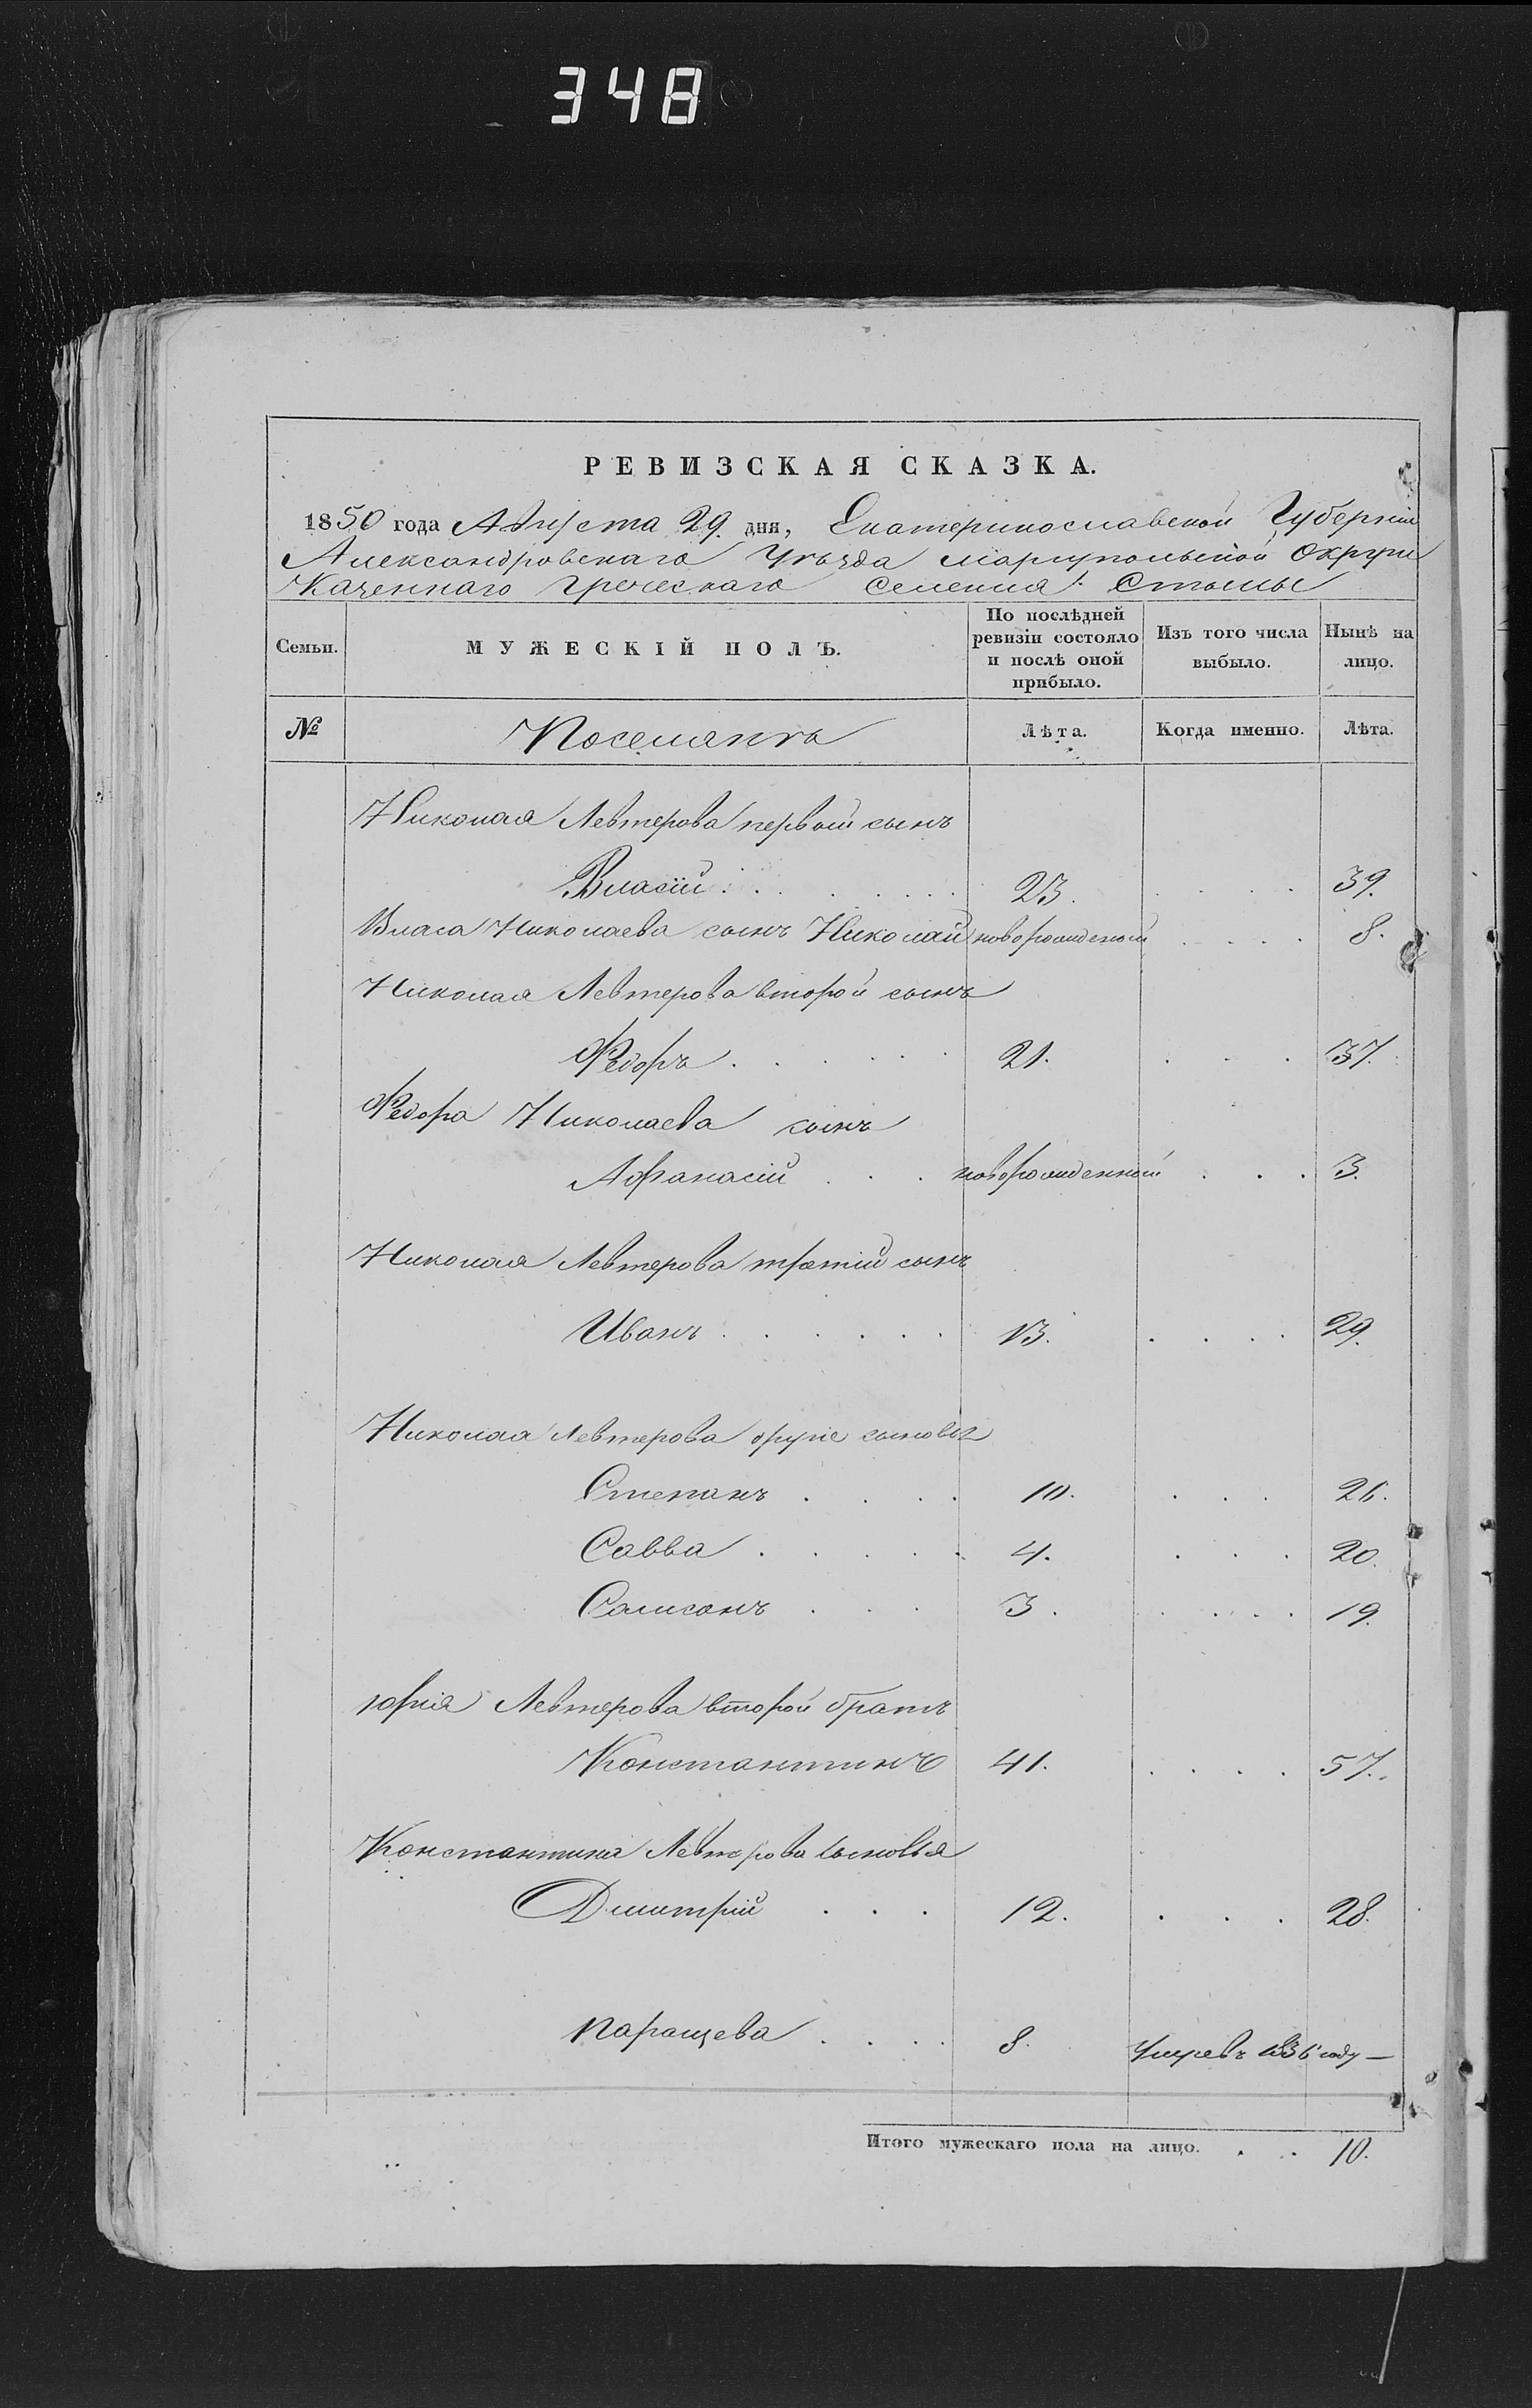 348
РЕВИЗСКАЯ СКАЗКА.
1850 года Августа 29. дня, Екатеринославской Губерніи
Александровскаго Уѣзда Маріупольской Округи
Казеннаго Греческаго Селенія: Стылы
Семьи. МУЖЕСКІЙ ПОЛЪ. По послѣдней ревизіи состояло и послѣ оной прибыло. Изъ того числа выбыло. Нынѣ на лицо.
№ Поселянъ Лѣта. Когда именно. Лѣта.
Николая Левтерова первый сынъ
Власій 23. 39.
Власа Николаева сынъ Николай новорожденой 8.
Николая Левтерова второй сынъ
Федоръ 21. 37.
Федора Николаева сынъ
Афанасій новорожденный 3.
Николая Левтерова третій сынъ
Иванъ 13. 29.
Николая Левтерова другіе сыновья
Степанъ 10. 26.
Савва 4. 20.
Самсонъ 3. 19.
Юрія Левтерова второй братъ
Константинъ 41. 57.
Константина Левтерова сыновья
Дмитрій 12. 28.
Паращева 8. Умревъ 1836 году —
Итого мужескаго пола на лицо. 10.